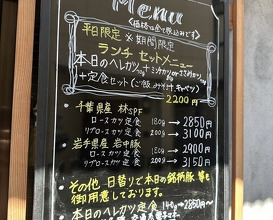 Menu
(価格は全て税込みです)
平日限定 ※期間限定
ランチ セットメニュー
本日のヘレカツ
+定食セット(ご飯,みそ汁,キャベツ)
2200円
千葉県産 林SPF
ロースカツ定食 180g → 2850円
リブロースカツ定食 200g → 3100円
岩手県産 岩中豚
ロースカツ定食 180g → 2900円
リブロースカツ定食 200g → 3150円
その他 日替りで本日の銘柄豚 等も
御用意しております。
本日のヘレカツ定食 140g → 2850円~